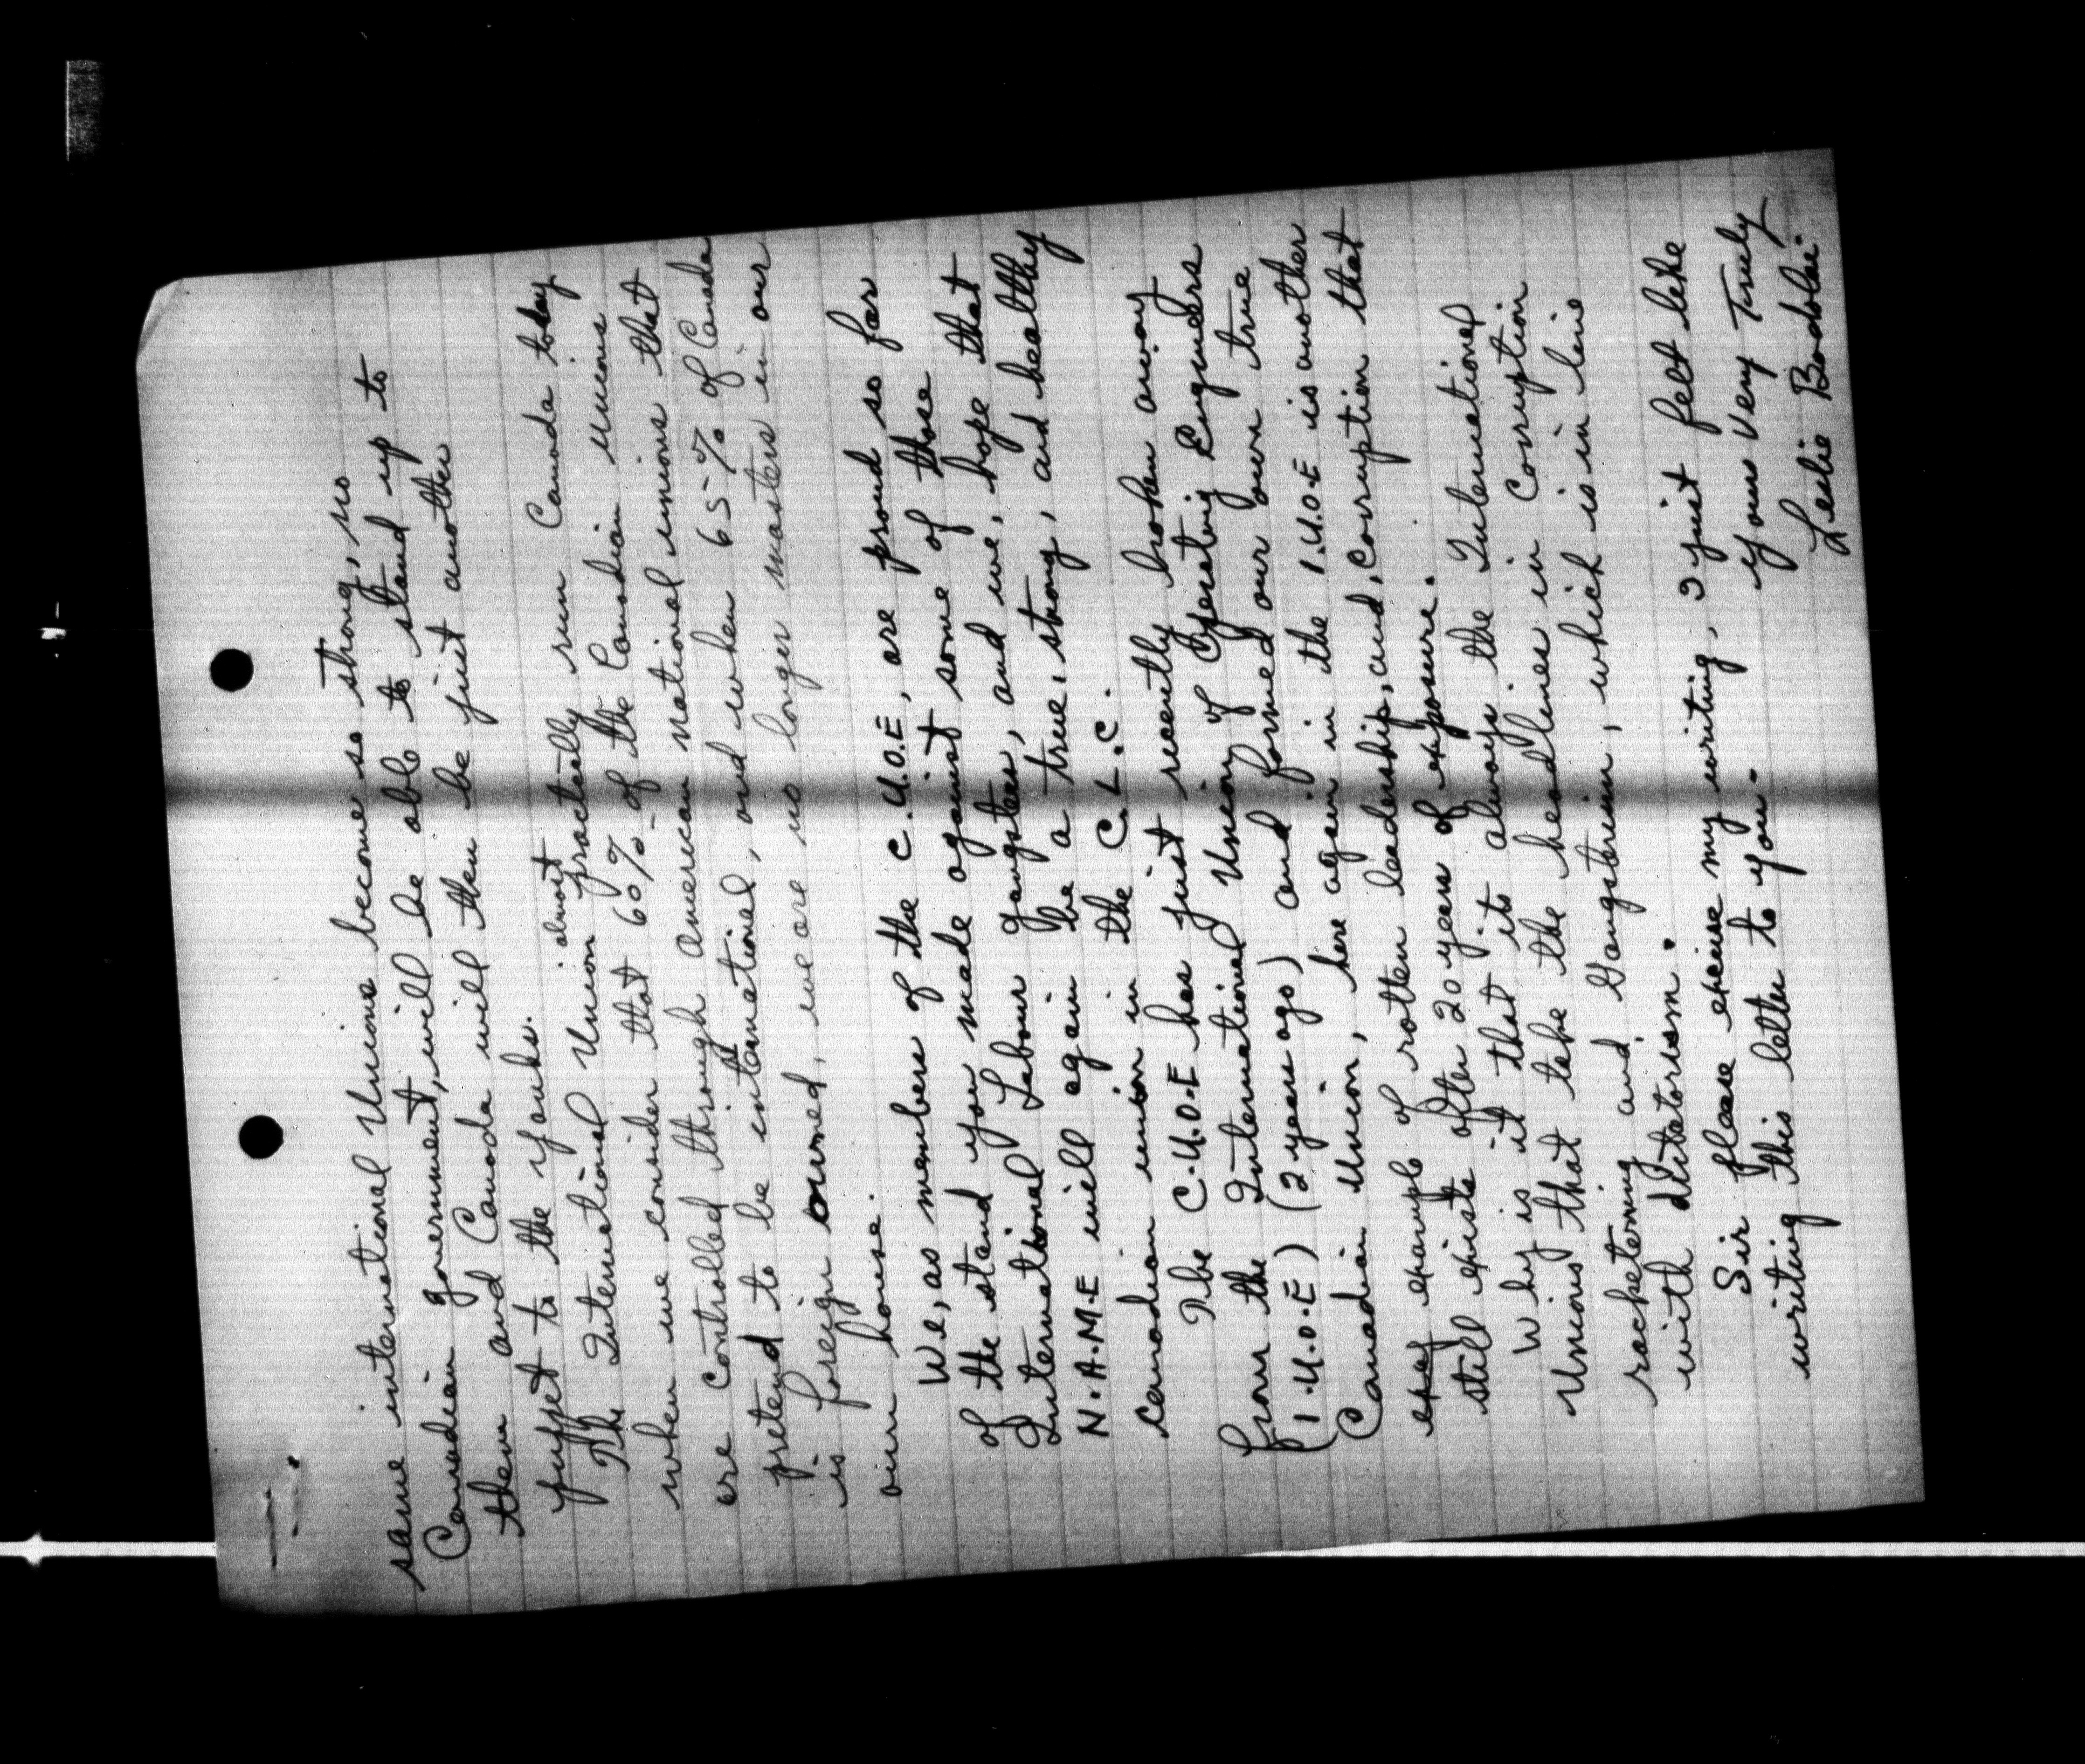 same international Unions become so strong, no
Canadian government, will be able to stand up to
them and Canada will then be just another
puppet to the yanks.
The International Union almost practically run Canada today
when we consider that 60% of the Canadian unions
are controlled through american national unions that
pretend to be international, and when 65% of Canada
is foreign owned, we are no longer masters in our
own house.
We, as members of the C.U.O.E, are proud so far
of the stand you made against some of those
International Labour gangsters, and we, hope that
N.A.M.E will again be a true, strong, and healthy
canadian union in the C.L.C.
The C.U.O.E has just recently broken away
from the International Union of Operating Engineers
(I.U.O.E) (2 years ago) and formed our own true
Canadian Union, here again in the I.U.O.E is another
example of rotten leadership, and, corruption that
still exists after 20 years of exposure.
Why is it that its always the International
Unions that take the headlines in Corruption
racketering and Gangsterism, which is in line
with dictatorism.
Sir please excuse my writing, I just felt like
writing this letter to you -
yours Very Truly
Leslie Bodolai